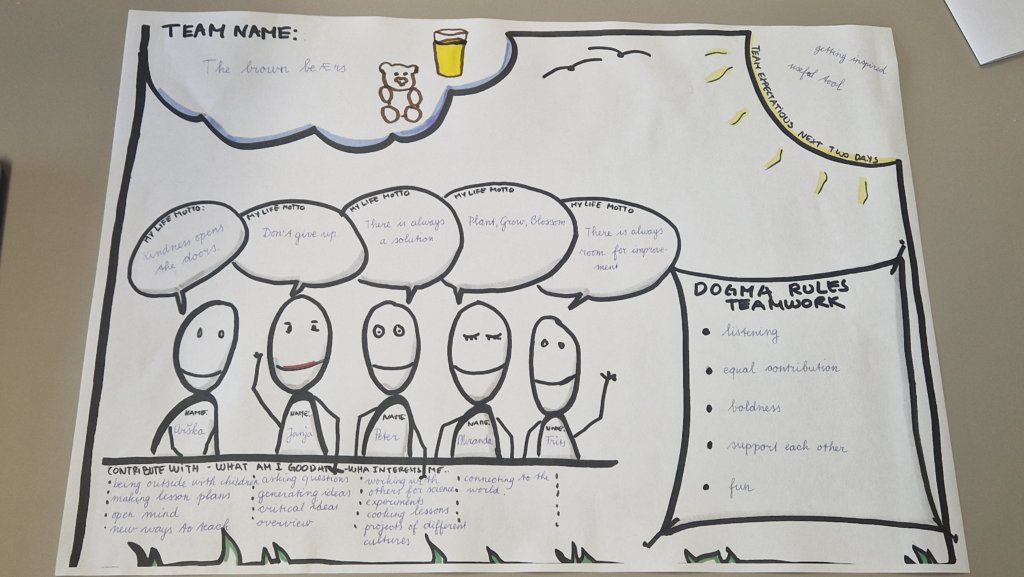 TEAM NAME:
The brown beÆrs
TEAM EXPECTATIONS NEXT TWO DAYS
getting inspired
useful tool
MY LIFE MOTTO:
kindness opens
the doors.
MY LIFE MOTTO
Don't give up
MY LIFE MOTTO
There is always
a solution
MY LIFE MOTTO
Plant, Grow, Blossom
MY LIFE MOTTO
There is always
room for improve-
ment
DOGMA RULES
TEAMWORK
• listening
• equal contribution
• boldness
• support each other
• fun
NAME:
Urška
NAME:
Janja
NAME
Peter
NAME:
Miranda
NAME:
Frits
CONTRIBUTE WITH - WHAT AM I GOOD AT - WHA INTERESTS ME..
• being outside with children
• making lesson plans
• open mind
• new ways to teach
• asking questions
• generating ideas
• critical ideas
• overview
• working with
others for science
• experiments
• cooking lessons
• projects of different
cultures
• connecting to the
world